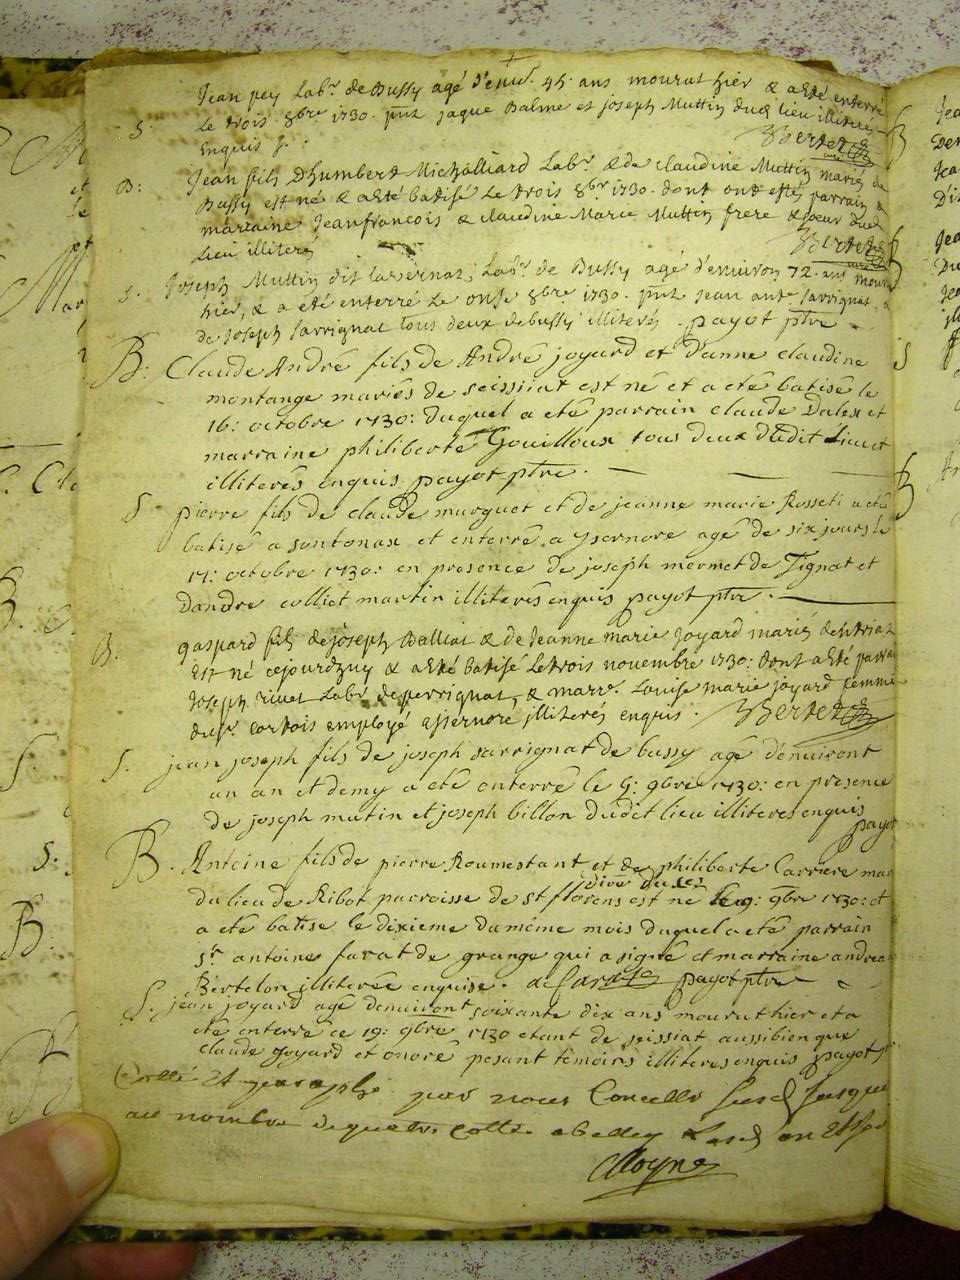 Jean pey Lab.r de Bussy agé d'env.r 45. ans mourut hier & a esté enterré
S. Le trois 8bre 1730. p.nt jaque Balme et joseph Muttin dud. lieu illiterés
Enquis
Bertet
B: Jean fils D'humbert Michalliard Lab.r & de Claudine Muttin mariés de
Bussy est né & a esté batisé Le trois 8br 1730. dont ont estés parrain &
marraine Jeanfrancois & Claudine Marie Muttin frere & soeur dud.
Lieu illiterés
Bertet
S. Joseph Muttin dit Lab.r de Bussy agé d'environ 72. ans mourut
hier, & a eté enterré Le onse 8bre 1730. p.nt jean ant.e Sarrignat &
de joseph Sarrignat tous deux de bussy illiterés. payot ptre
B: Claude André fils de André joyard et d'anne claudine
montange mariés de seissiat est né et a eté batisé le
16: octobre 1730: duquel a eté parrain claude Dalex et
marraine philiberte Gouilloux tous deux dudit Lieu et
illiterés enquis payot ptre.
S pierre fils de claude murguet et de jeanne marie Rosset a eté
batisé a sontonax et enterré a ysernore agé de six jours le
17: octobre 1730: en presence de joseph mermet de Tignat et
dandré colliet martin illiterés enquis payot ptre.
B. gaspard fils de joseph Balliat & de Jeanne marie joyard mariés
Est né cejourdhuy & a esté batisé Le trois novembre 1730: dont a esté parrain
Joseph rivet Lab.r de perrignat, & marr.e Louise marie joyard femme
du s.r cortois employé a issernore illiterés enquis. Bertet
S. jean joseph fils de joseph sarrignat de bussy agé d'environt
un an et demy a eté enterré le 5: 9bre 1730: en presence
de joseph mutin et joseph billon dudit lieu illiteres enquis
payot
B. Antoine fils de pierre Roumestant et de philiberte Carriere mar
du lieu de Ribot parroisse de st florens est né le 9: 9bre 1730: et
a eté batisé le dixieme du méme mois duquel a eté parrain
s.r antoine farat de grange qui a signé et marraine andrea
Bertelon illiterée enquise. payot ptre
S. jean joyard agé denviront soixante dix ans mourut hier et a
eté enterré ce 19: 9bre 1730 etant de seissiat aussibien que
claude joyard et onoré pesant témoins illiteres enquis payot
Cotté et paraphé par nous Conseiller jusque
au nombre de quatre a belley